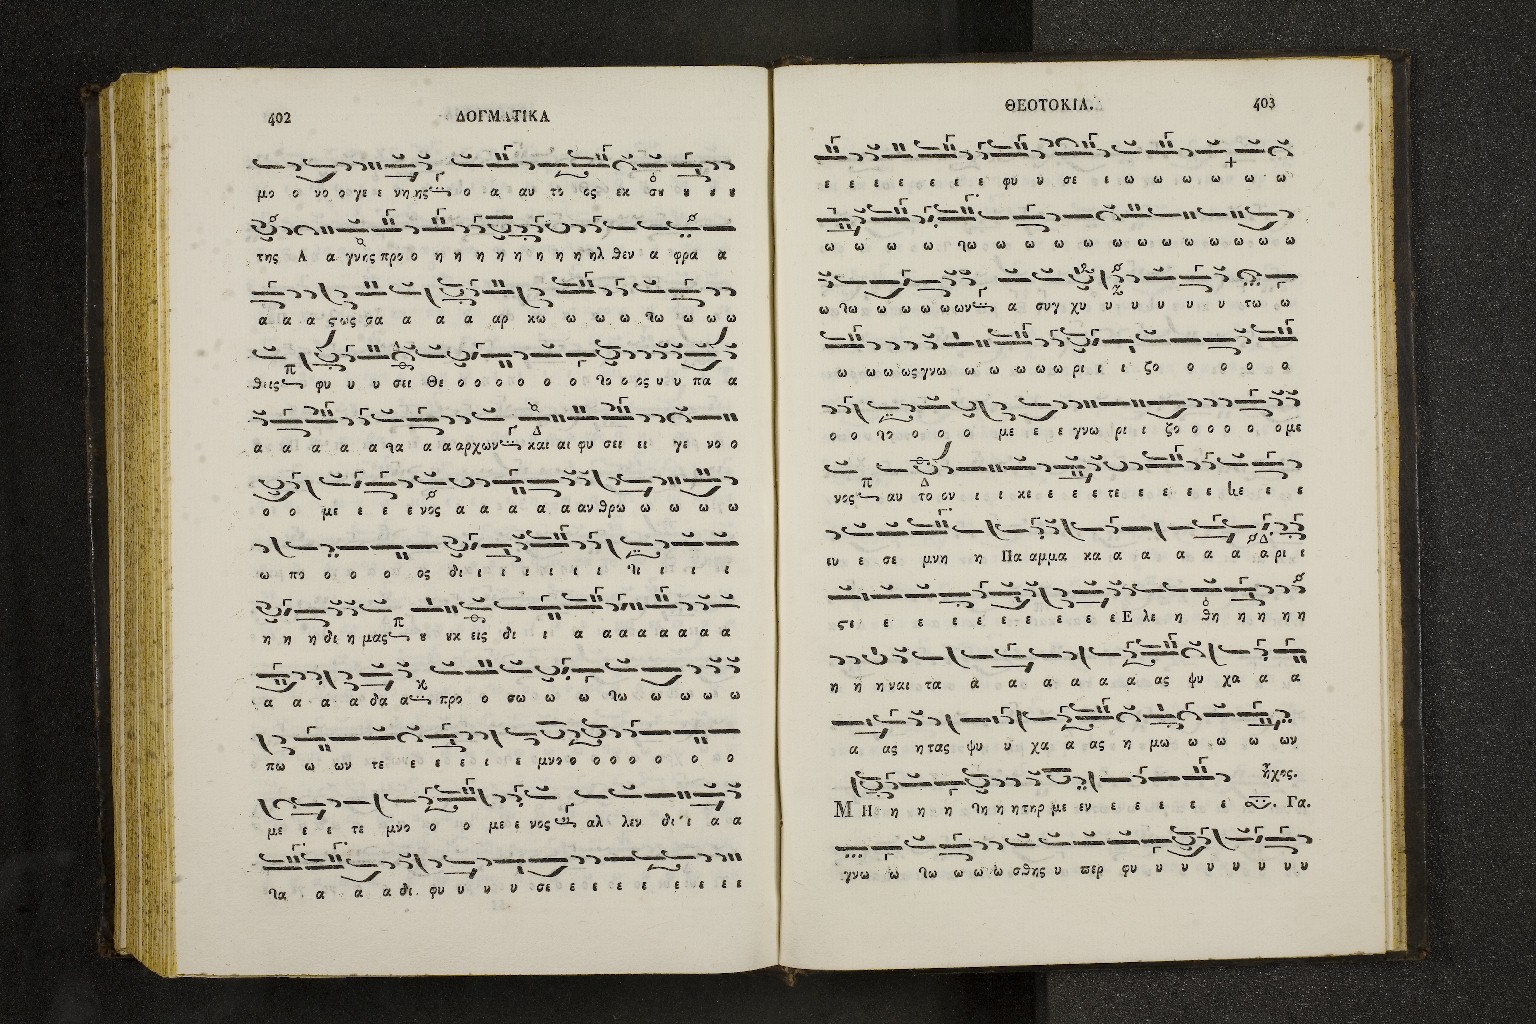 402 ΔΟΓΜΑΤΙΚΑ
μο ο νο ο γε ε νη ης ο α αυ το ος εκ σȣ ȣ ȣ ȣ
της Α α γνης προ ο η η η η η η η η ηλ θεν α φρα α
α α α ςως σα α α α αρ κω ω ω ω ω ω ω ω
θεις φυ υ υ σει Θε ο ο ο ο ο ο ο ο ος υ υ πα α
α α α α α α α α αρχων και αι φυ σει ει γε νο ο
ο ο με ε ε ε νος α α α α α αν θρω ω ω ω ω
ω πο ο ο ο ος δι ι ι ι ι ι ι ι ι ι ι
η η η δι η μας ȣ ȣκ εις δι ι α α α α α α α α
α α α α δα α προ ο σω ω ω ω ω ω ω ω
πω ω ων τε ε ε ε ι ε μνο ο ο ο ο ο ο ο
με ε ε τε μνο ο ο με ε νος αλ λεν δι ι α α
α α α α δι φυ υ υ υ σε ε ε ε ε ε ε ε ε
ΘΕΟΤΟΚΙΑ. 403
ε ε ε ε ε ε ε φυ υ σε ε ω ω ω ω ω ω
ω ω ω ω ω ω ω ω ω ω ω ω ω ω ω ω ω
ω ω ω ω ω ω ων α συγ χυ υ υ υ υ υ τω ω
ω ω ω ως γνω ω ω ω ω ω ρι ι ι ζο ο ο ο ο
ο ο ο ο ο ο με ε ε γνω ρι ι ζο ο ο ο ο ο με
νος αυ το ον ι ι κε ε ε ε τε ε ε ε ε με ε ε
ευ ε σε μνη η Πα αμμα κα α α α α α α α ρι ι
ςι ε ε ε ε ε ε ε ε Ε λε η θη η η η η
η η η ναι τα α α α α α α ας ψυ χα α α
α ας η τας ψυ υ χα α ας η μω ω ω ω ων
ἦχος.
ΜΗ η η η η η η τηρ με εν ε ε ε ε ε Γα.
γνω ω ω ω ω ω σθης υ περ φυ υ υ υ υ υ υ υ